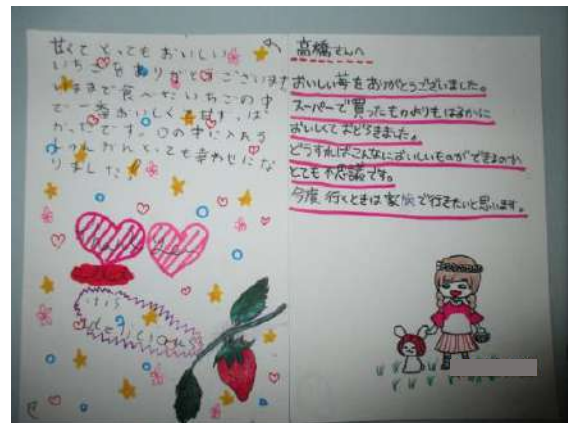 甘くてとってもおいしい
いちごをありがとうございます
いままで食べたいちごの中
で一番おいしくて甘す
かったです。口の中に入れる
とっても幸せにな
りました
Thank you
it's
delicious
高橋さんへ
おいしい苺をありがとうございました。
スーパーで買ったものよりもはるかに
おいしくておどろきました。
どうすればこんなにおいしいものができるのか
とても不思議です。
今度行くときは家族で行きたいと思います。